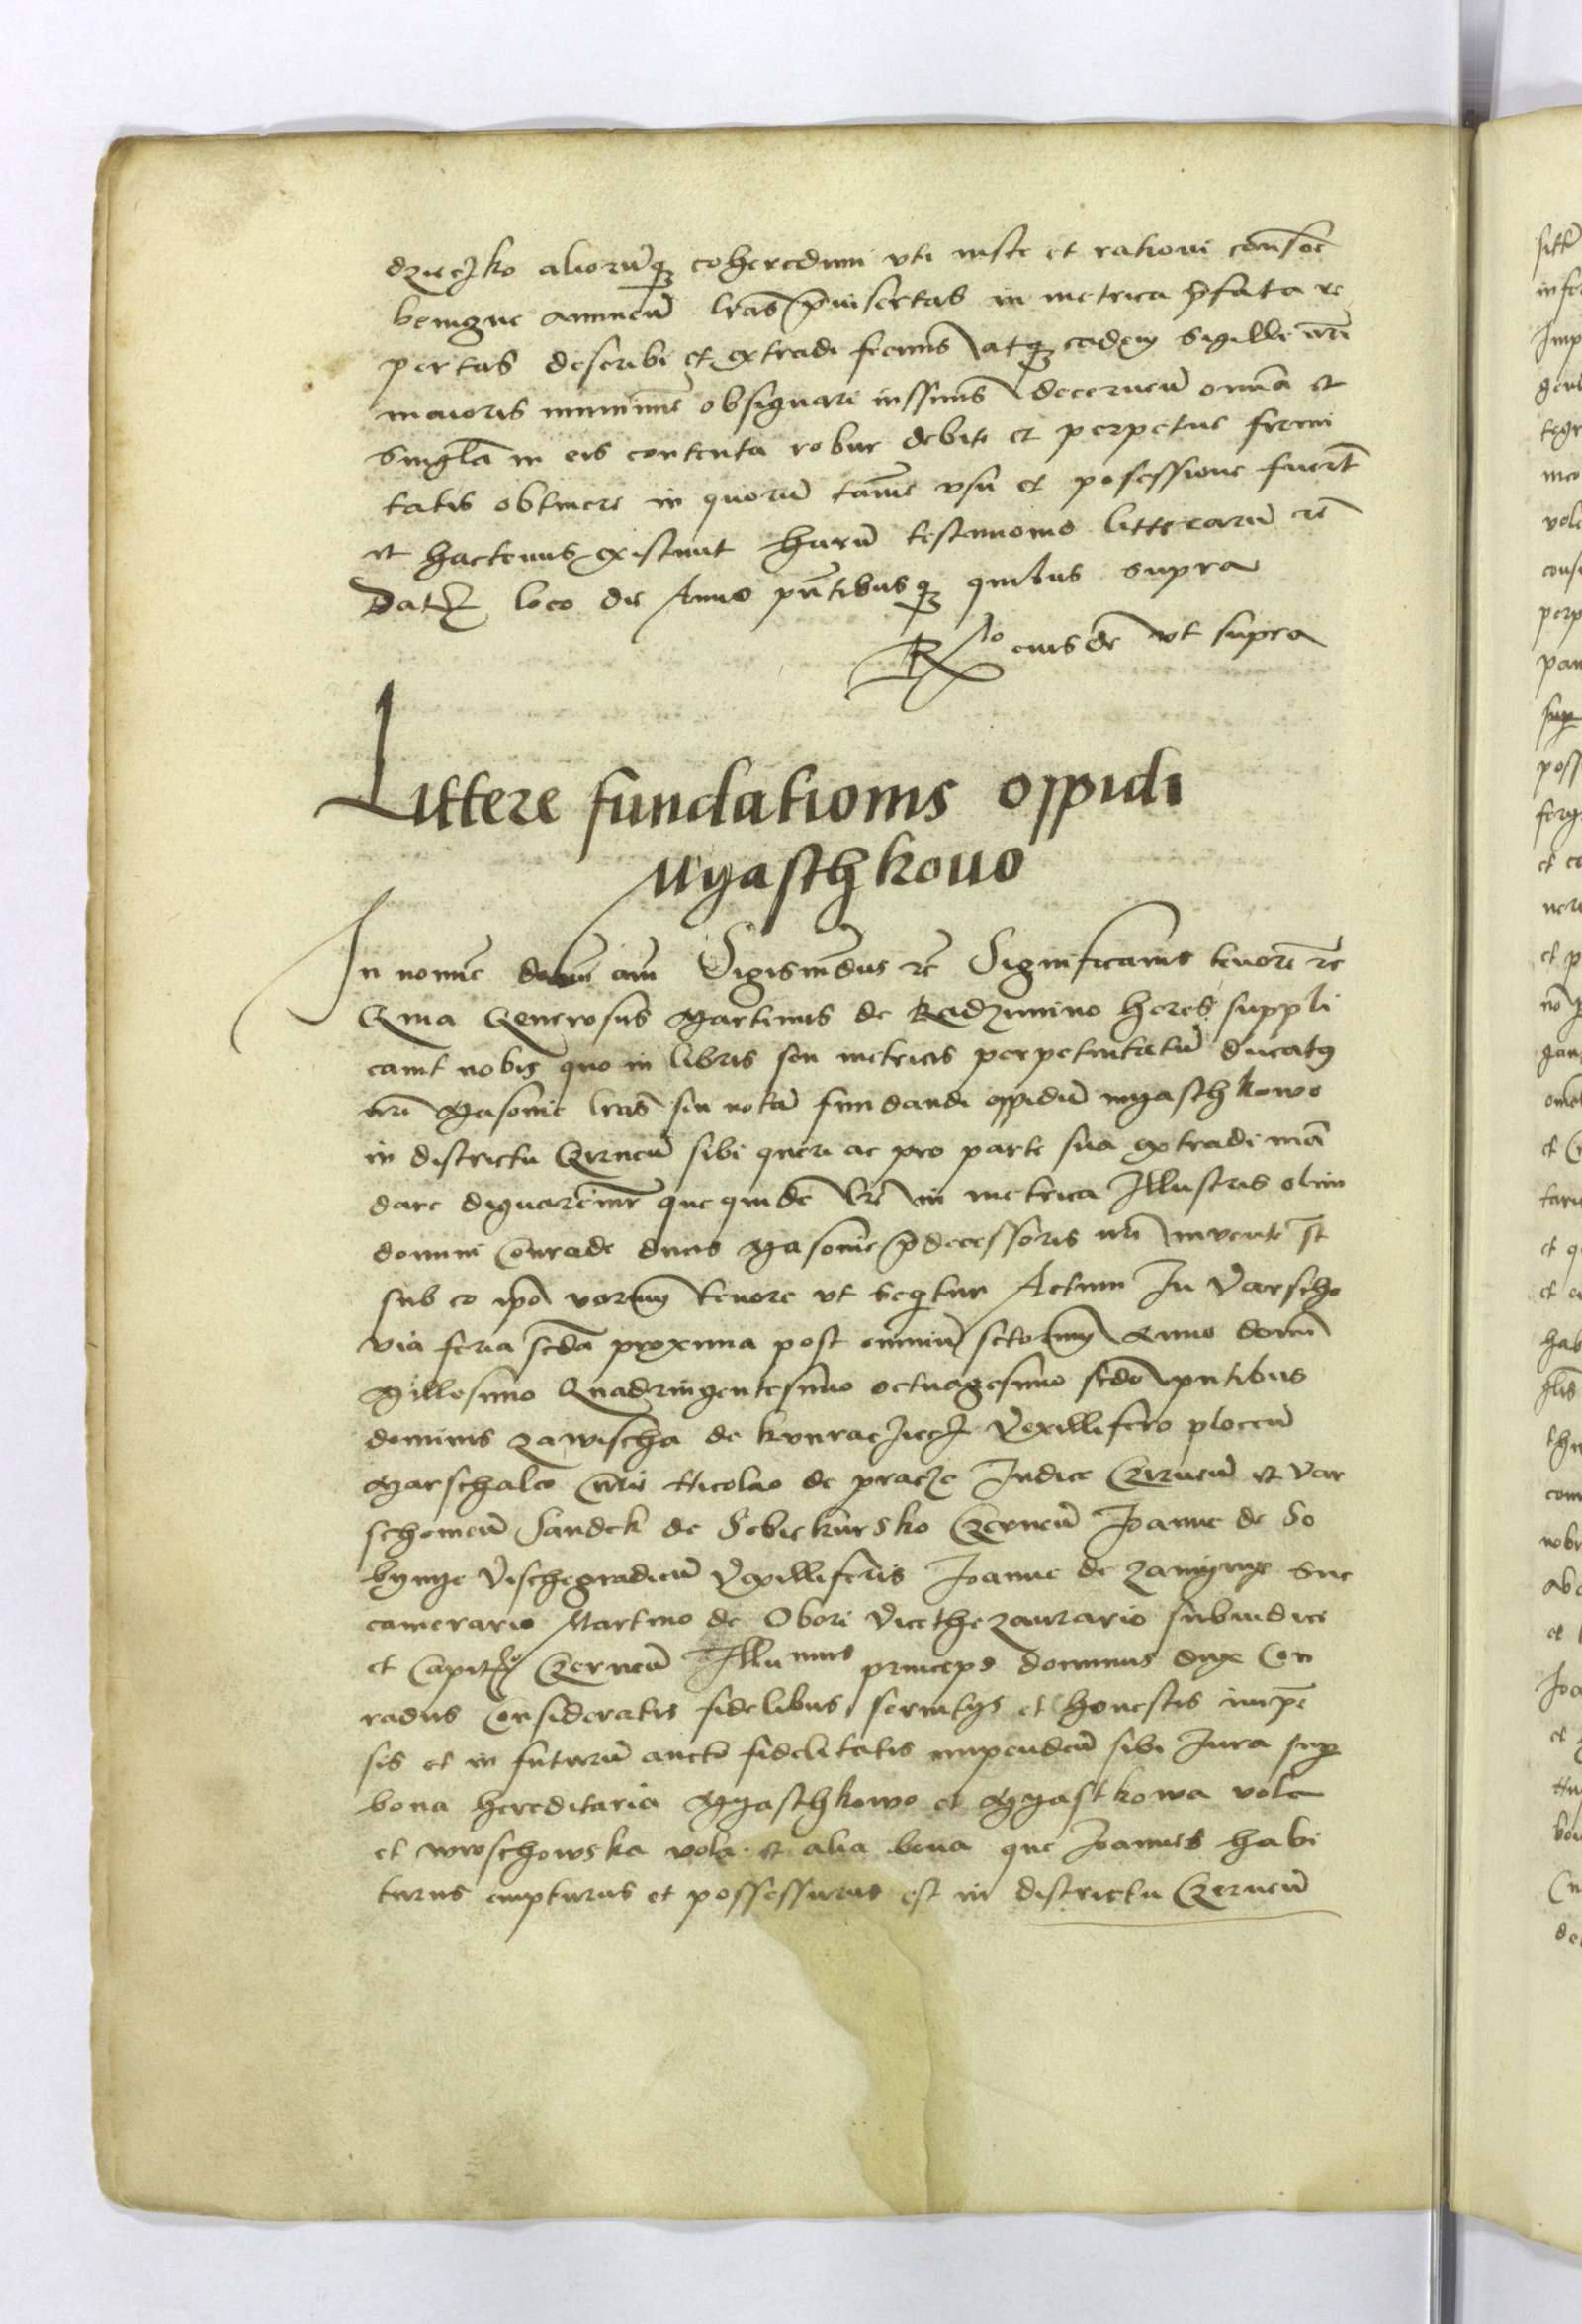 dzieczko aliorūqꝫ coheredum vti iuste et rationi conson̄
benigne annuen̄ lr̄as p̄insertas in metrica p̄fata re
pertas describi et extradi fecimus atqꝫ eadem sigilli nr̄i
maioris munimīe obsignari iussimus decernen̄ om̄ia et
singl̄a in eis contenta robur debite et perpetue firmi
tatis obtinere in quorū tamē vsu et possessione fuer̄t
et hactenus existunt harū testimonio litterarū rē
Dat loco die Anno pn̄tibusqꝫ quibus supra
Rlo eiusdē vt supra
Littere fundationis oppidi
Myaschkouo
In nomīe domī am̄ Sigismūdus rē Significamus tenorē rē
Quia Generosus Martinus de Radzimino heres suppli
cauit nobis quo in libris seu metricis perpetuitatū ducatus
nr̄i Masouie lr̄as siu notā fundandi oppidū myaschkowo
in districtu Czirnen̄ sibi queri ac pro parte sua extradi mā
dare dignaremur que quidē lr̄e in metrica Illustris olim
domini Conradi ducis Masouie p̄decessoris nr̄i inuente st̄
sub eo ip̄o verorum tenore vt seqitur Actum In Varscho
via feria scd̄a proxima post omniū sctorum Anno domī
Millesimo Quadringentesimo octuagesimo scd̄o pn̄tibus
dominis zawischa de kunracziecz Vexillifero plocen̄
Marschalco Curie Nicolao de pracze Iudice Czirnen̄ et Var
schouien̄ Sandek de Sebiekursko Czernen̄ Joanne de So
bynye Vischegradien̄ Vexilliferis Joanne de zamyenye Suc
camerario Martino de Obori Vicethezaurario subiudice
et Capit Czernen̄ Illumus princeps dominus dux Con
radus Consideratis fidelibus seruitys et honestis impē
sis et in futurū auctū fidelitatis impenden̄ sibi Jura sup
bona hereditaria Myaschkowo et Myastkowa vola
et wroschowska vola et alia bona que Joannes habi
turus empturus et possessurus est in districtu Czernen̄